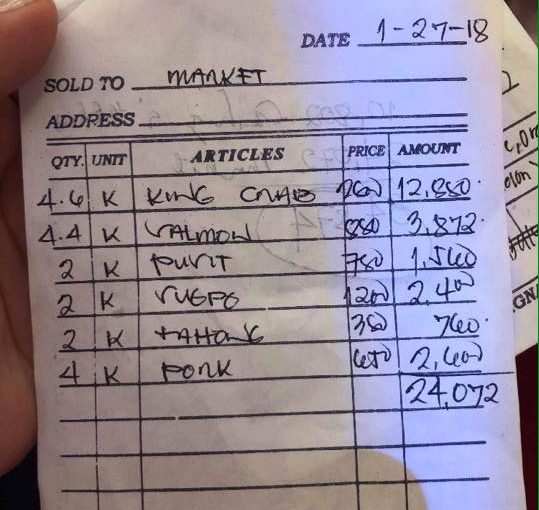 DATE 1-27-18
SOLD TO MARKET
ADDRESS
QTY. UNIT ARTICLES PRICE AMOUNT
4.6 K KING CRAB 2800 12,880.
4.4 K SALMON 880 3,872.
2 K PUSIT 780 1,560
2 K SUGPO 1200 2,400
2 K TAHONG 380 760.
4 K PORK 650 2,600
24,072